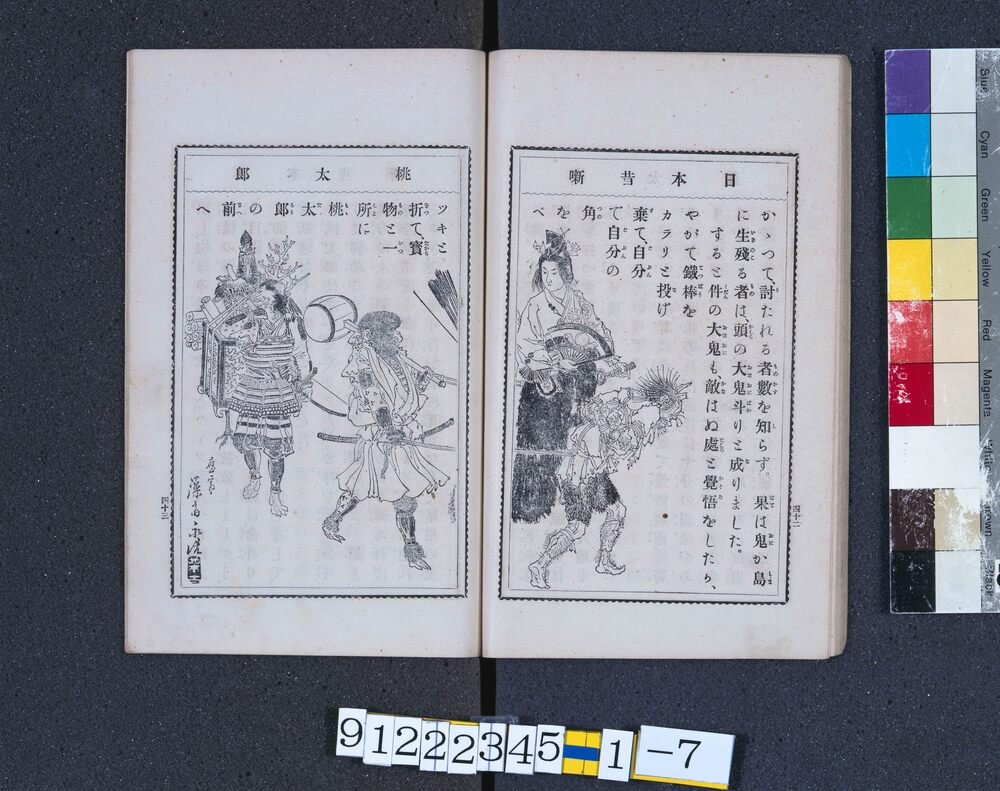 日本昔噺
かゝつて、討たれる者數を知らず。果は鬼か島
に生殘る者は、頭の大鬼斗りと成りました。
すると件の大鬼も、敵はぬ處と覺悟をしたか、
やがて鐵棒を
カラリと投げ
棄て、自分
て自分の
角
を
べ
四十二
桃太郎
ツキと
折て、寳
物と一
所に
桃
太
郎
の
前
へ
四十三
Blue
Cyan
Green
Yellow
Red
Magenta
White
Brown
Black
9122345
1
-7